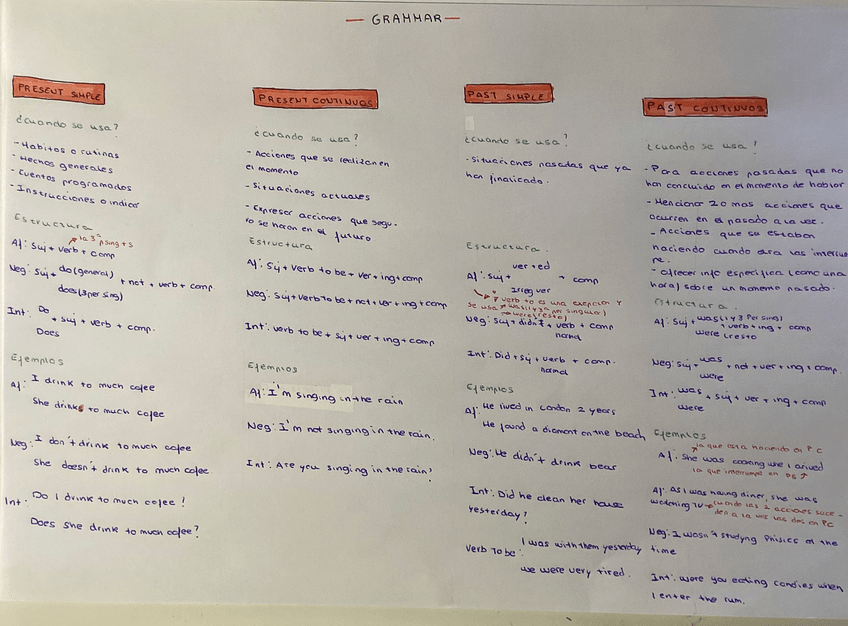 — GRAMMAR —
PRESENT SIMPLE
¿Cuando se usa?
- Habitos o rutinas
- Hechos generales
- Eventos programados
- Instrucciones o indicar
Estructura
la 3ª p sing + s
Af: Suj + verb + comp
Neg: Suj + do (general) + not + verb + comp
does (3 per sing)
Int: Do + suj + verb + comp.
Does
Ejemplos
Af: I drink to much cofee
She drinks to much cofee
Neg: I don't drink to much cofee
She doesn't drink to much cofee
Int: Do I drink to much cofee?
Does she drink to much cofee?
PRESENT CONTINUOS
¿Cuando se usa?
- Acciones que se realizan en
el momento
- Situaciones actuales
- Expresar acciones que segu-
ro se haran en el futuro
Estructura
Af: Suj + Verb to be + ver + ing + comp
Neg: Suj + verb to be + not + ver + ing + comp
Int: verb to be + Suj + ver + ing + comp
Ejemplos
Af: I'm singing in the rain
Neg: I'm not singing in the rain.
Int: Are you singing in the rain?
PAST SIMPLE
¿Cuando se usa?
- Situaciones pasadas que ya
han finalizado.
Estructura.
ver + ed
Af: Suj + + comp
Irreg ver
verb to es una excepcion y
se usa was (1 y 3ª per singular)
were (resto)
Neg: Suj + didn't + verb + comp
normal
Int: Did + suj + verb + comp.
normal
Ejemplos
Af: He lived in London 2 years
He found a diamont on the beach
Neg: He didn't drink bear
Int: Did he clean her house
yesterday?
Verb To be: I was with them yesterday
we were very tired.
PAST CONTINUOS
¿Cuando se usa?
- Para acciones pasadas que no
han concluido en el momento de hablar
- Mencionar 2 o mas acciones que
ocurren en el pasado a la vez.
- Acciones que se estaban
haciendo cuando otra las interrum
pe.
- Ofrecer info especifica (como una
hora) sobre un momento pasado.
Estructura.
Af: Suj + was (1 y 3 Per sing) + verb + ing + comp
were (resto)
Neg: Suj + was + not + ver + ing + comp.
were
Int: was + suj + ver + ing + comp
were
Ejemplos
lo que esta haciendo en PC
Af: She was cooking whe I arived
lo que interrumpe en PS
Af: As I was having diner, she was
watening TV → cuando las 2 acciones suce-
den a la vez las dos en PC
Neg: I wasn't studyng phisics at the
time
Int: were you eating candies when
I enter the rum.